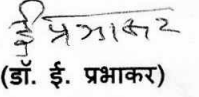 ई प्रभाकर
(डॉ. ई. प्रभाकर)